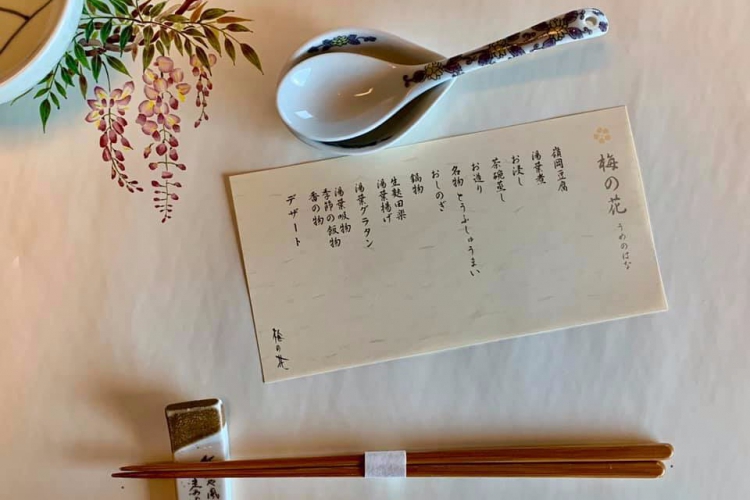 梅の花
うめのはな
嶺岡豆腐
湯葉煮
お浸し
茶碗蒸し
お造り
名物とうふしゅうまい
おしのぎ
鍋物
生麩田楽
湯葉揚げ
湯葉グラタン
湯葉吸物
季節の飯物
香の物
デザート
梅の花